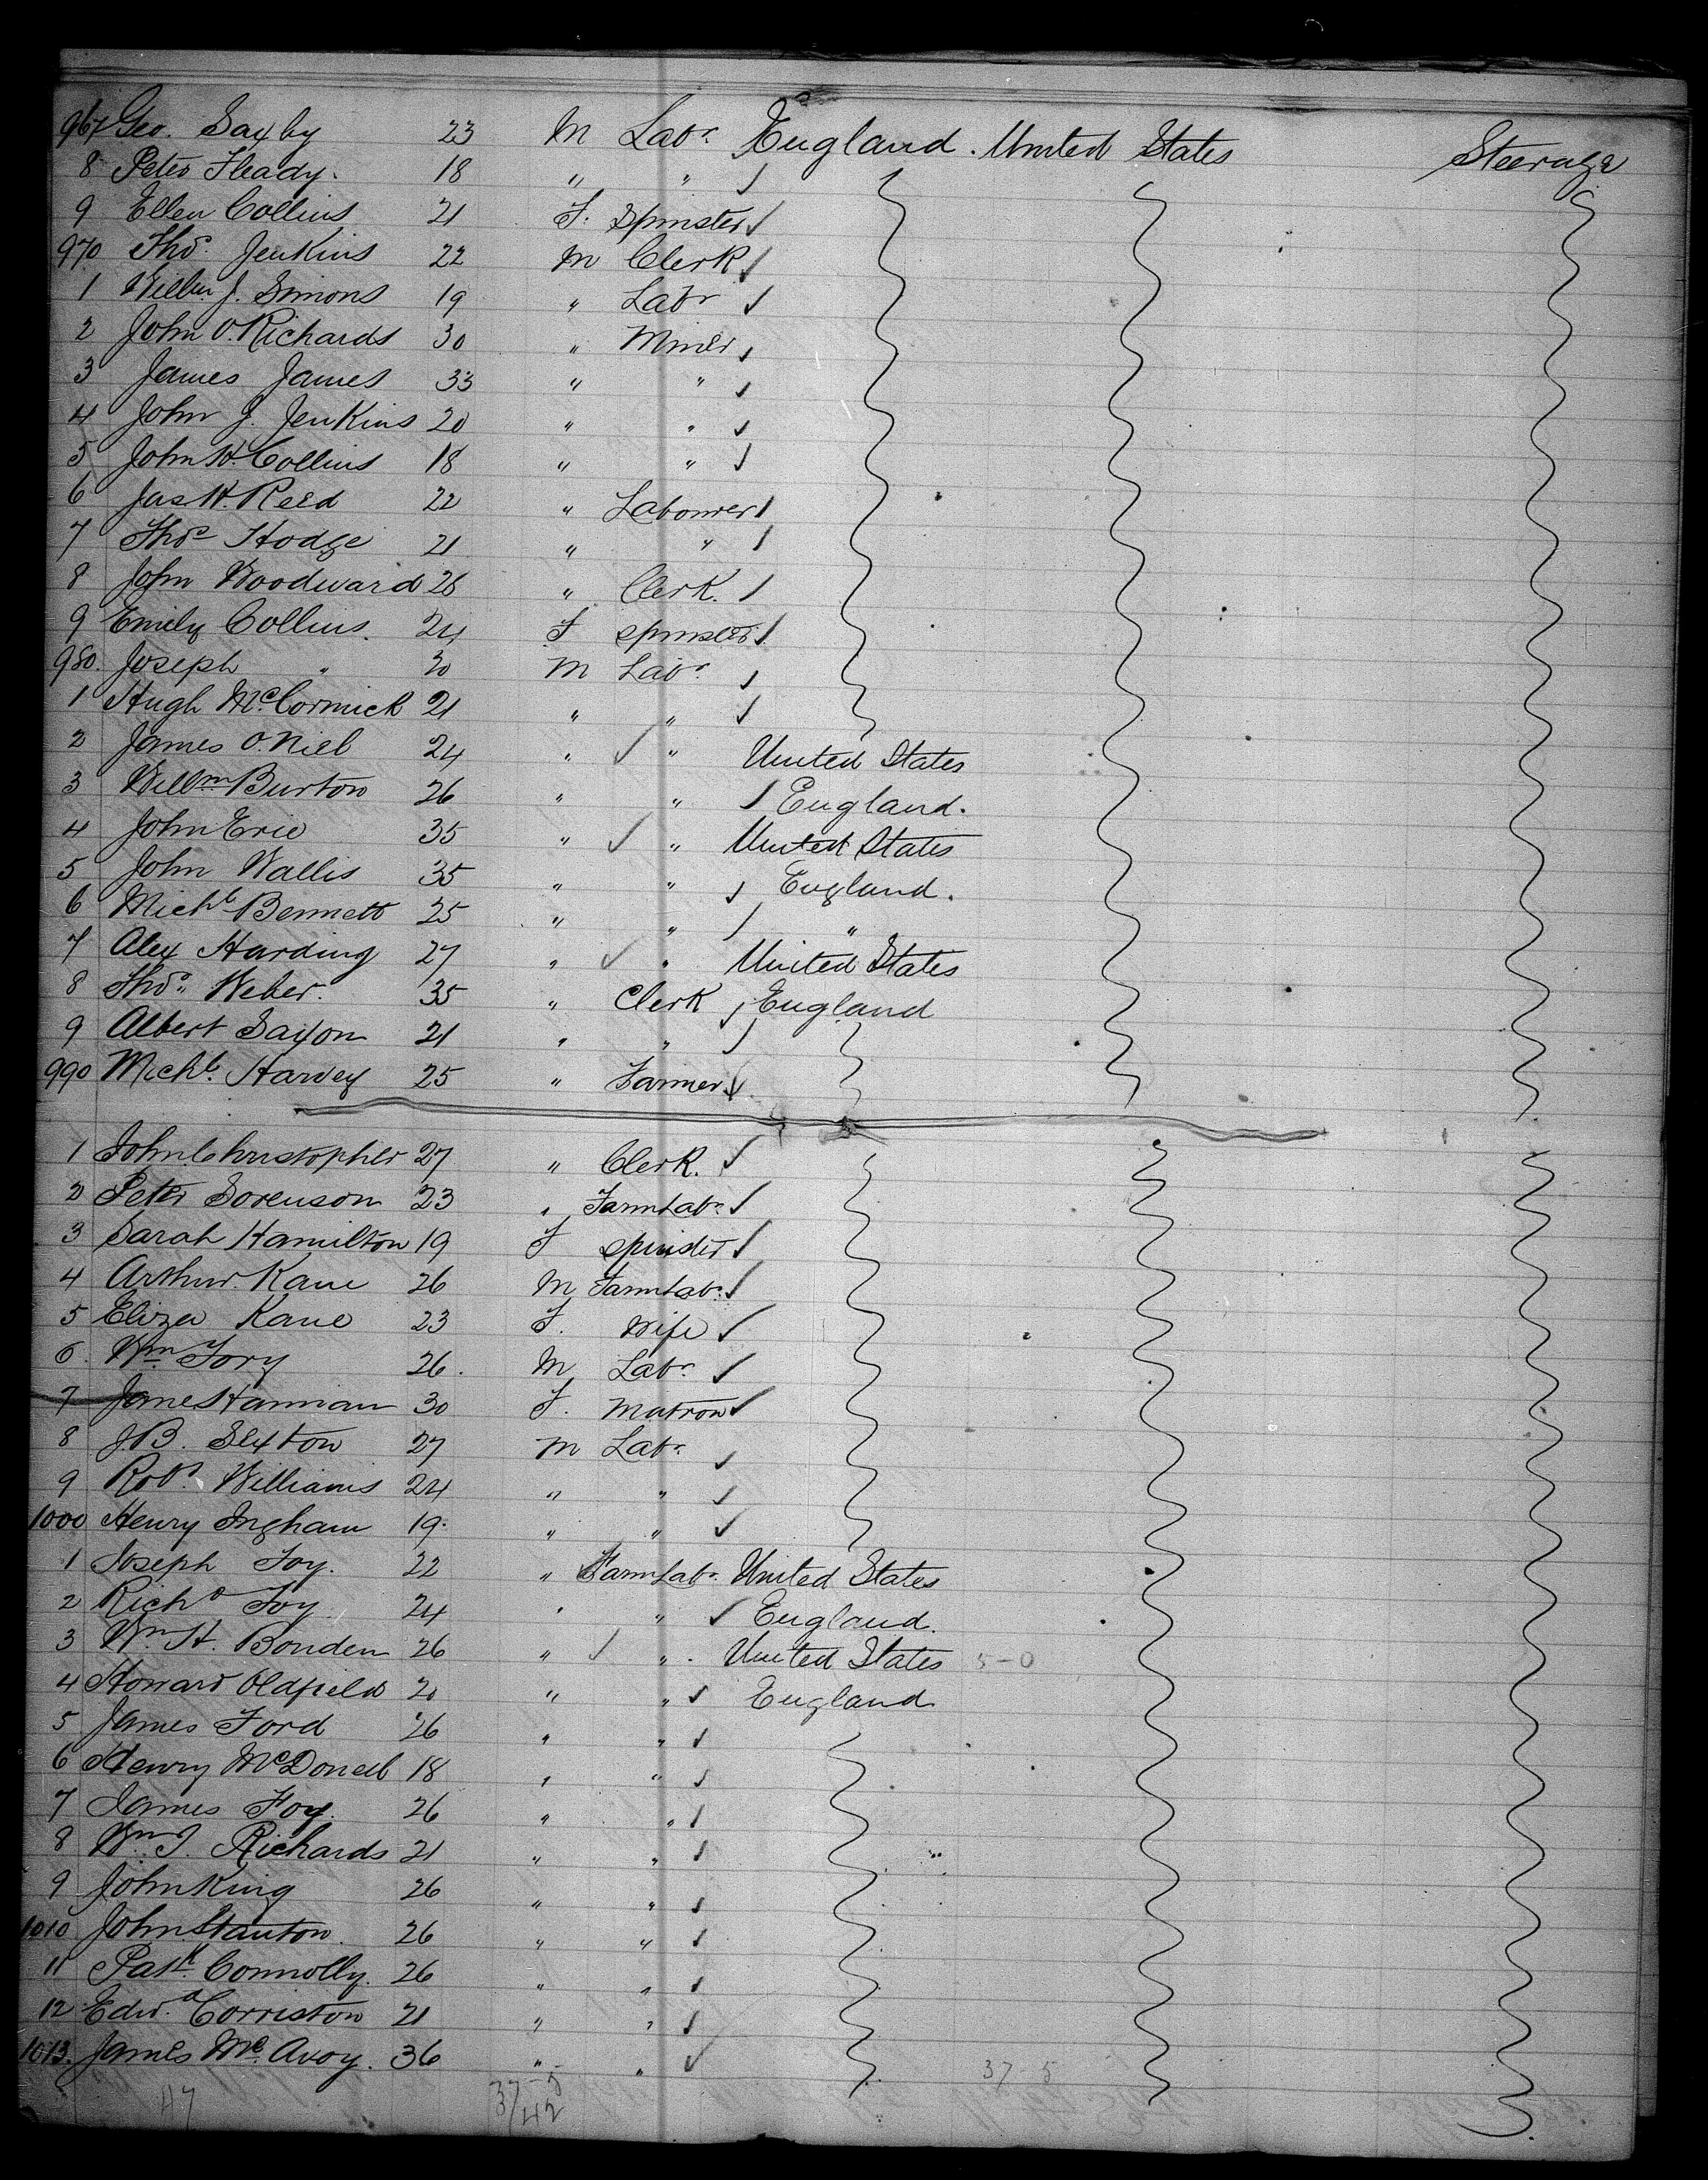 967 Geo. Saxby 23 M Labr England. United States Steerage
8 Peter Heady. 18 " "
9 Ellen Collins 21 F. Spinster
970 Thos. Jenkins 22 M Clerk
1 J. Simons 19 " Labr
2 John O. Richards 30 " Miner
3 James James 33 " "
4 John J. Jenkins 20 " "
5 John H. Collins 18 " "
6 Jas H. Reed 22 " Labourer
7 Thos Hodge 21 " "
8 John Woodward 26 " Clerk.
9 Emily Collins. 24 F Spinster
980. Joseph " 20 M Labr
1 Hugh McCormick 21 " "
2 James O.Niel 24 " " United States
3 Willm Burton 26 " " England.
4 John Erie 35 " " United States
5 John Wallis 35 " " England.
6 Michl Bennett 25 " " "
7 Alex Harding 27 " " United States
8 Thos. Weber. 35 " Clerk England
9 Albert Saxon 21 " "
990 Michl. Harvey 25 " Farmer
1 John Christopher 27 " Clerk.
2 Peter Sorenson 23 " Farm Labr
3 Sarah Hamilton 19 F Spinster
4 Arthur Kane 26 M Farm Labr
5 Eliza Kane 23 F. Wife
6. Wm Tory 26. M Labr
7 Jane Hannan 30 F. Matron
8 J.B. Sexton 27 M Labr
9 Robt. Williams 24 " "
1000 Henry Ingham 19. " "
1 Joseph Foy. 22 " Farm Labr United States
2 Richd Foy 24 " " England.
3 Wm. H. Bonden 26 " " United States 5-0
4 Howard Oldfield 20 " " England
5 James Ford 26 " "
6 Henry McDonell 18 " "
7 James Foy. 26 " "
8 Wm J. Richards 21 " "
9 John King 26 " "
1010 John Stanton. 26 " "
11 Patk. Connolly. 26 " "
12 Edwd. Corriston 21 " "
1013. James Mc.Avoy. 36 " " 37 5
47 37-5
42